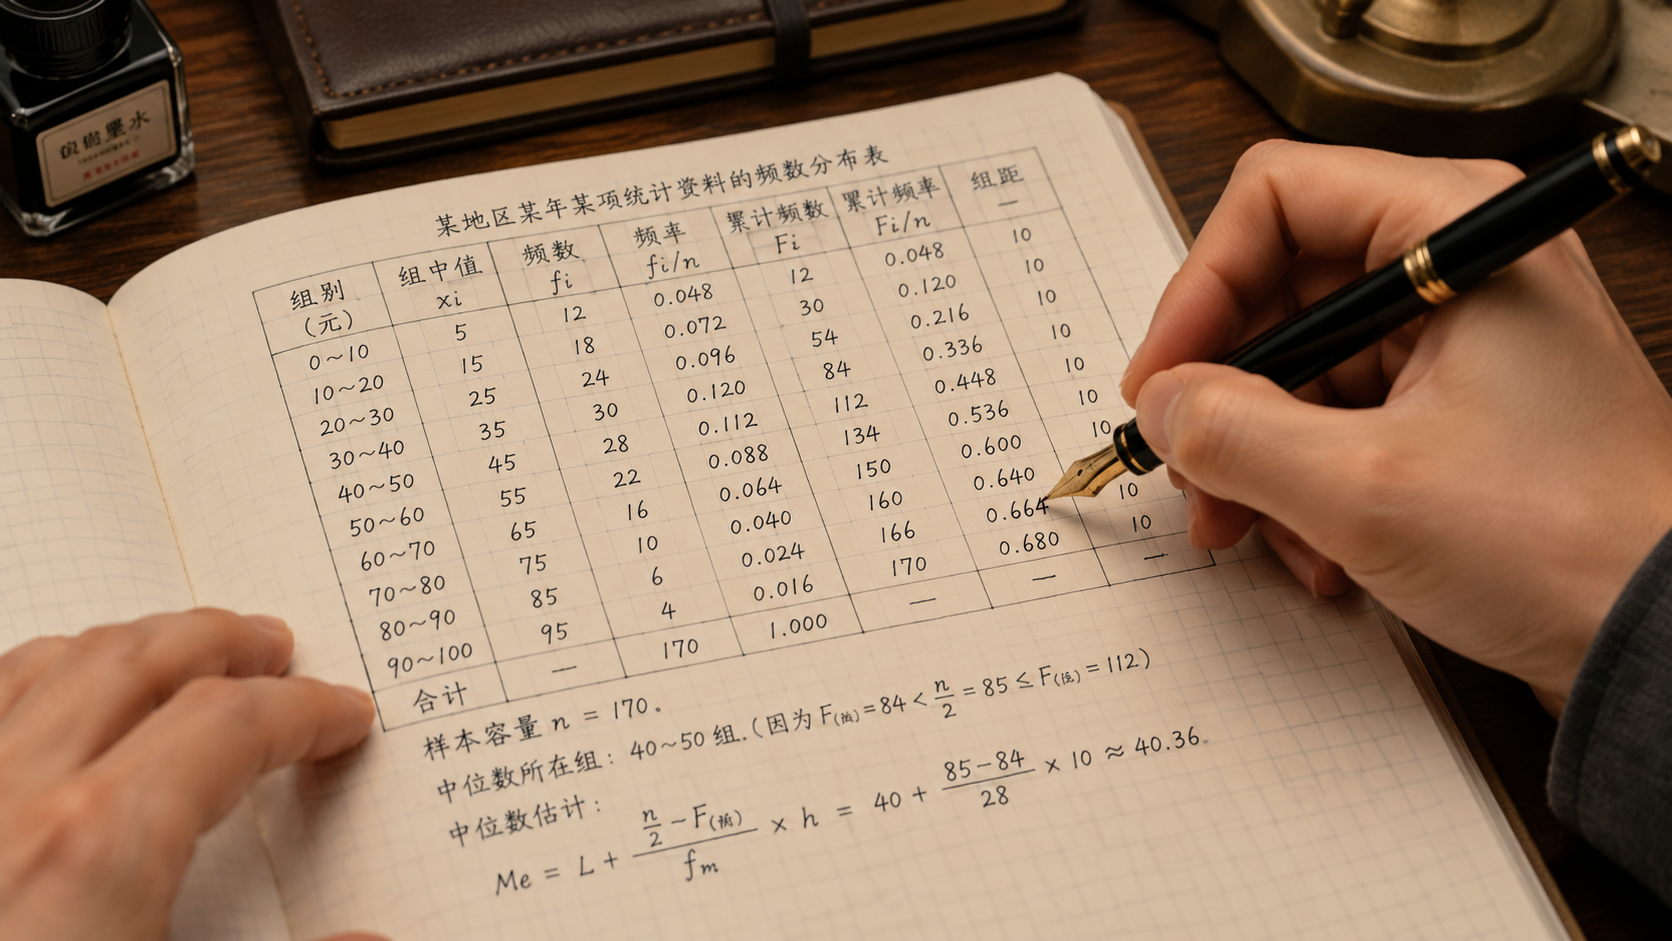 墨水
某地区某年某项统计资料的频数分布表
组别（元） 组中值 xi 频数 fi 频率 fi/n 累计频数 Fi 累计频率 Fi/n 组距 —
0～10 5 12 0.048 12 0.048 10
10～20 15 18 0.072 30 0.120 10
20～30 25 24 0.096 54 0.216 10
30～40 35 30 0.120 84 0.336 10
40～50 45 28 0.112 112 0.448 10
50～60 55 22 0.088 134 0.536 10
60～70 65 16 0.064 150 0.600 10
70～80 75 10 0.040 160 0.640
80～90 85 6 0.024 166 0.664 10
90～100 95 4 0.016 170 0.680 10
合计 — 170 1.000 — — —
样本容量 n = 170。
中位数所在组：40～50 组.(因为 F = 84 < n/2 = 85 ≤ F = 112)
中位数估计：
Me = L + (n/2 − F)/fm × h = 40 + (85−84)/28 × 10 ≈ 40.36.